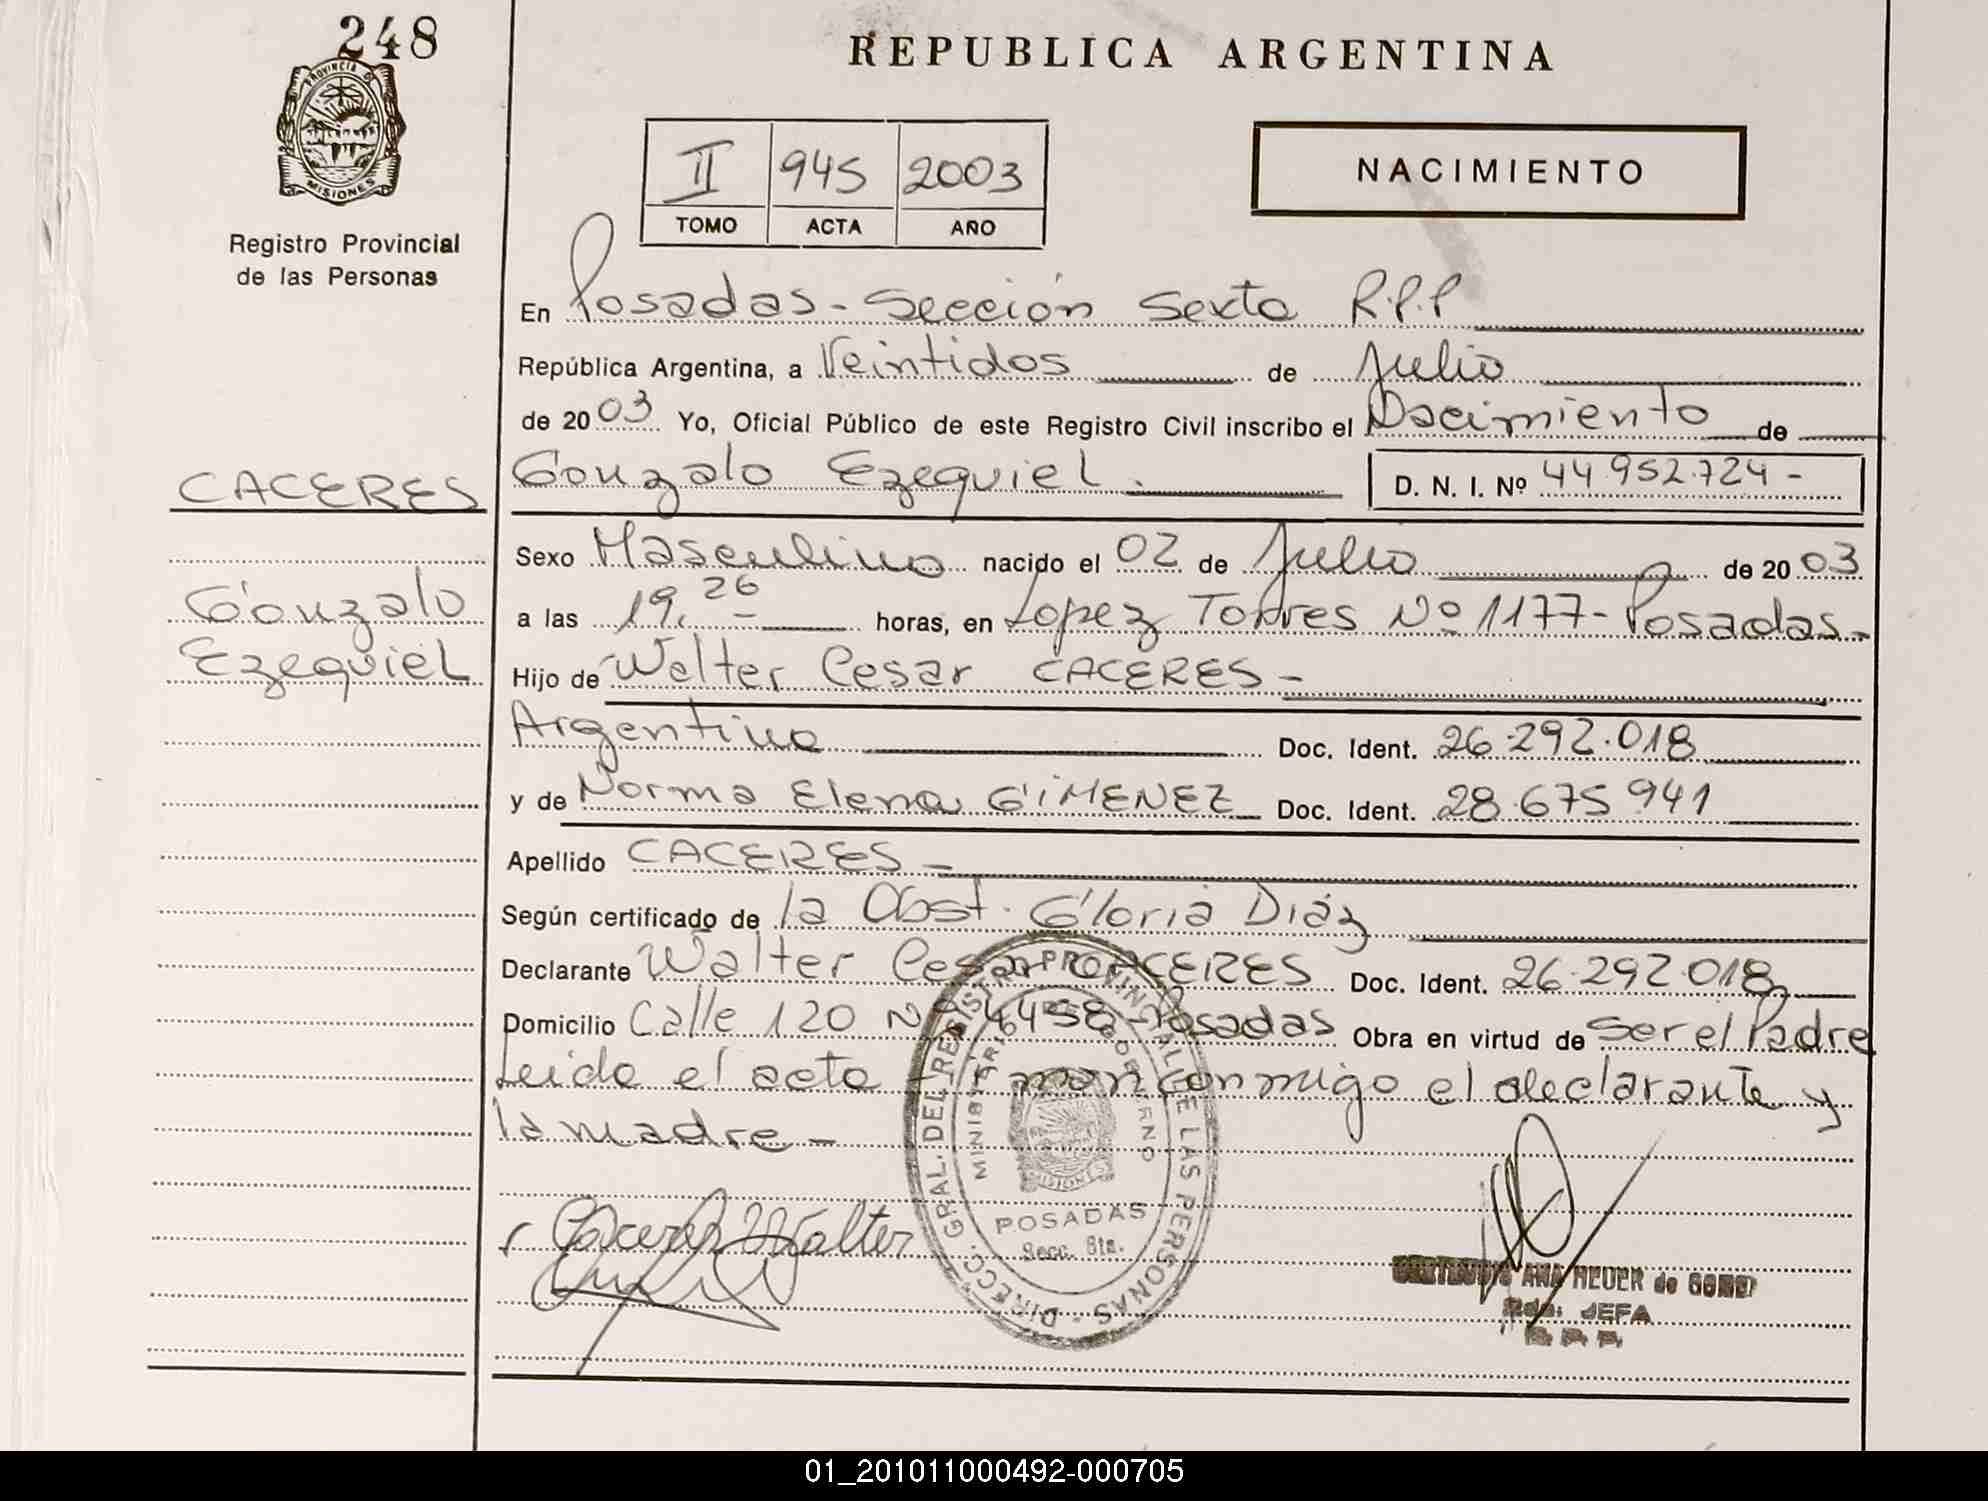 248
PROVINCIA DE
MISIONES
Registro Provincial
de las Personas
REPUBLICA ARGENTINA
II 945 2003
TOMO ACTA AÑO
NACIMIENTO
En Posadas - Sección Sexta R.P.P
República Argentina, a Veintidos de Julio
de 2003 Yo, Oficial Público de este Registro Civil inscribo el Nacimiento de
CACERES
Gonzalo Ezequiel
Gonzalo Ezequiel. D. N. I. Nº 44.952.724 -
Sexo Masculino nacido el 02 de Julio de 2003
a las 19,26 horas, en Lopez Torres Nº 1177 - Posadas -
Hijo de Walter Cesar CACERES -
Argentino Doc. Ident. 26.292.018
y de Norma Elena GIMENEZ Doc. Ident. 28.675 941
Apellido CACERES -
Según certificado de la Obst. Gloria Diáz
Declarante Walter Cesar CACERES Doc. Ident. 26.292 018
Domicilio Calle 120 Nº 4458 - Posadas Obra en virtud de ser el Padre
Leida el acta firman conmigo el declarante y
la madre -
Caceres Walter
DIRECC. GRAL. DEL REGISTRO PROVINCIAL DE LAS PERSONAS -
MINISTERIO DE GOBIERNO
MISIONES
POSADAS
Secc. 6ta.
ANA HEUER de GOMEZ
JEFA
R. P. P.
01_201011000492-000705